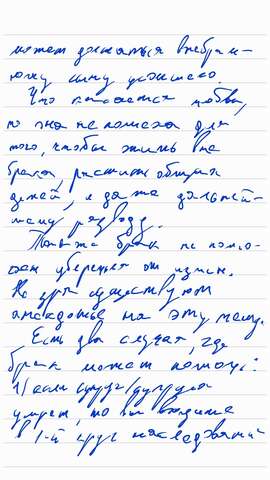 может
силу
Что касается любви,
то она не помеха для
того, чтобы жить вне
брака, растить общих
детей, и даже дальней-
шему разводу.
Также брак не помо-
жет уберечься от измен.
существуют
анекдоты на эту тему.
Есть два случая, где
брак может помочь:
1) если супруг/супруга
умрет, то вы входите
в 1-й круг наследования